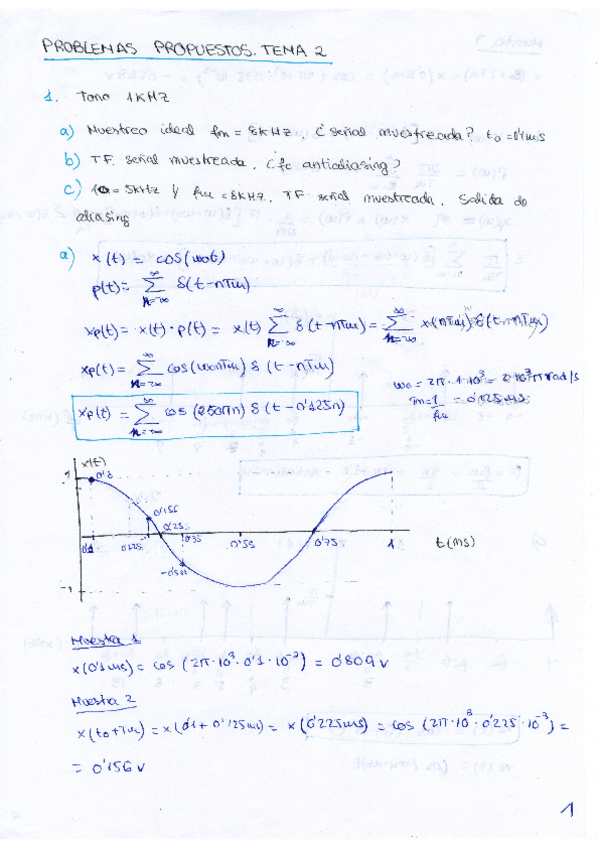 PROBLEMAS PROPUESTOS. TEMA 2
1. Tono 1KHZ
a) Muestreo ideal fm = 8KHZ, ¿ señal muestreada? to = 0'1ms
b) TF señal muestreada, ¿fc antialiasing?
c) fo = 5KHZ y fm = 8KHZ, TF señal muestreada. Salida de
aliasing
a) x(t) = cos(ωot)
p(t) = ∞ Σ n=-∞ δ(t-nTm)
xp(t) = x(t) · p(t) = x(t) ∞ Σ n=-∞ δ(t-nTm) = ∞ Σ n=-∞ x(nTm) δ(t-nTm)
xp(t) = ∞ Σ n=-∞ cos(ωonTm) δ(t-nTm)
ωo = 2π·1·10³ = 2·10³π rad/s
Tm = 1/fm = 0'125 ms
xp(t) = ∞ Σ n=-∞ cos(250πn) δ(t-0'125n)
x(t)
1
0'8
0'156
0'1
0'25
0'35
0'55
0'75
1
t(ms)
-1
Muestra 1
x(0'1ms) = cos(2π·10³·0'1·10⁻³) = 0'809 v
Muestra 2
x(to+Tm) = x(0'1+0'125ms) = x(0'225ms) = cos(2π·10³·0'225·10⁻³) =
= 0'156 v
1